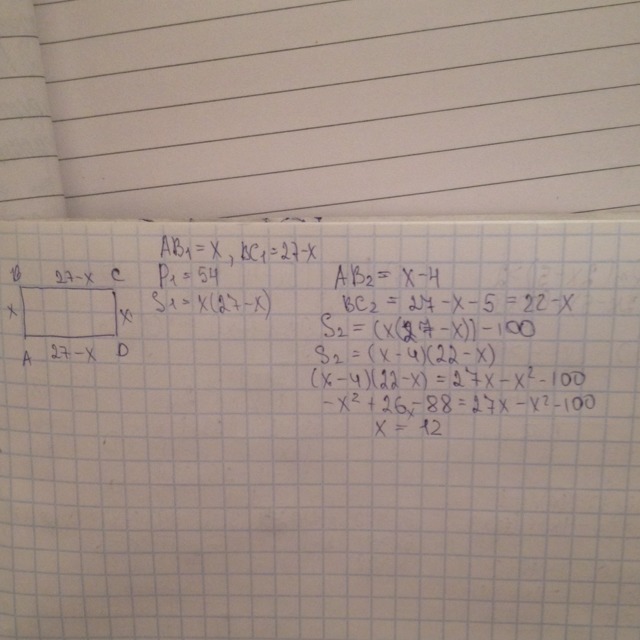 AB₁ = x, BC₁ = 27-x
B 27-x C
P₁ = 54
S₁ = x(27-x)
x x
A 27-x D
AB₂ = x-4
BC₂ = 27-x-5 = 22-x
S₂ = (x(27-x))-100
S₂ = (x-4)(22-x)
(x-4)(22-x) = 27x-x²-100
-x²+26x-88 = 27x-x²-100
x = 12